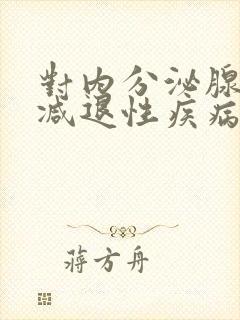 對內分泌腺
減退性疾病
蔣方舟